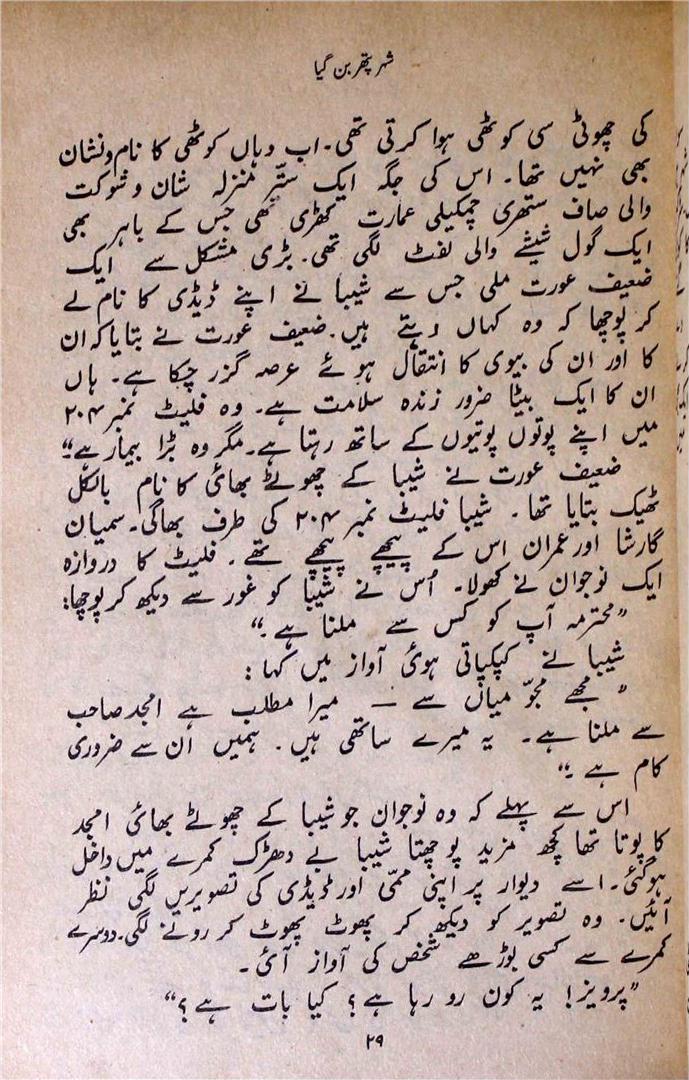 شہر پتھر بن گیا
کی چھوٹی سی کوٹھی ہوا کرتی تھی۔ اب وہاں کوٹھی کا نام و نشان
بھی نہیں تھا۔ اس کی جگہ ایک ستّر منزلہ شان و شوکت
والی صاف ستھری چمکیلی عمارت کھڑی تھی جس کے باہر بھی
ایک گول شیشے والی لفٹ لگی تھی۔ بڑی مشکل سے ایک
ضعیف عورت ملی جس سے شیبا نے اپنے ڈیڈی کا نام لے
کر پوچھا کہ وہ کہاں رہتے ہیں۔ ضعیف عورت نے بتایا کہ ان
کا اور ان کی بیوی کا انتقال ہوئے عرصہ گزر چکا ہے۔ ہاں
ان کا ایک بیٹا ضرور زندہ سلامت ہے۔ وہ فلیٹ نمبر ۲۰۴
میں اپنے پوتوں پوتیوں کے ساتھ رہتا ہے۔ مگر وہ بڑا بیمار ہے۔“
ضعیف عورت نے شیبا کے چھوٹے بھائی کا نام بالکل
ٹھیک بتایا تھا۔ شیبا فلیٹ نمبر ۲۰۴ کی طرف بھاگی۔ سمیان
گارشا اور عمران اس کے پیچھے پیچھے تھے۔ فلیٹ کا دروازہ
ایک نوجوان نے کھولا۔ اُس نے شیبا کو غور سے دیکھ کر پوچھا:
”محترمہ آپ کو کس سے ملنا ہے۔“
شیبا نے کپکپاتی ہوئی آواز میں کہا:
”مجھے مجوّ میاں سے — میرا مطلب ہے امجد صاحب
سے ملنا ہے۔ یہ میرے ساتھی ہیں۔ ہمیں ان سے ضروری
کام ہے۔“
اس سے پہلے کہ وہ نوجوان جو شیبا کے چھوٹے بھائی امجد
کا پوتا تھا کچھ مزید پوچھتا شیبا بے دھڑک کمرے میں داخل
ہو گئی۔ اسے دیوار پر اپنی ممّی اور ڈیڈی کی تصویریں لگی نظر
آئیں۔ وہ تصویر کو دیکھ کر پھوٹ پھوٹ کر رونے لگی۔ دوسرے
کمرے سے کسی بوڑھے شخص کی آواز آئی۔
”پرویز! یہ کون رو رہا ہے؟ کیا بات ہے؟“
۲۹